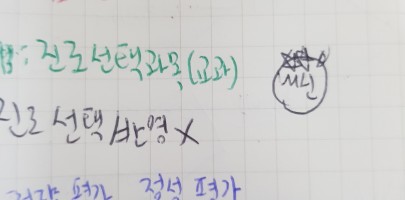 : 진로선택과목(교과)
진로 선택 반영 X
평가 정성 평가